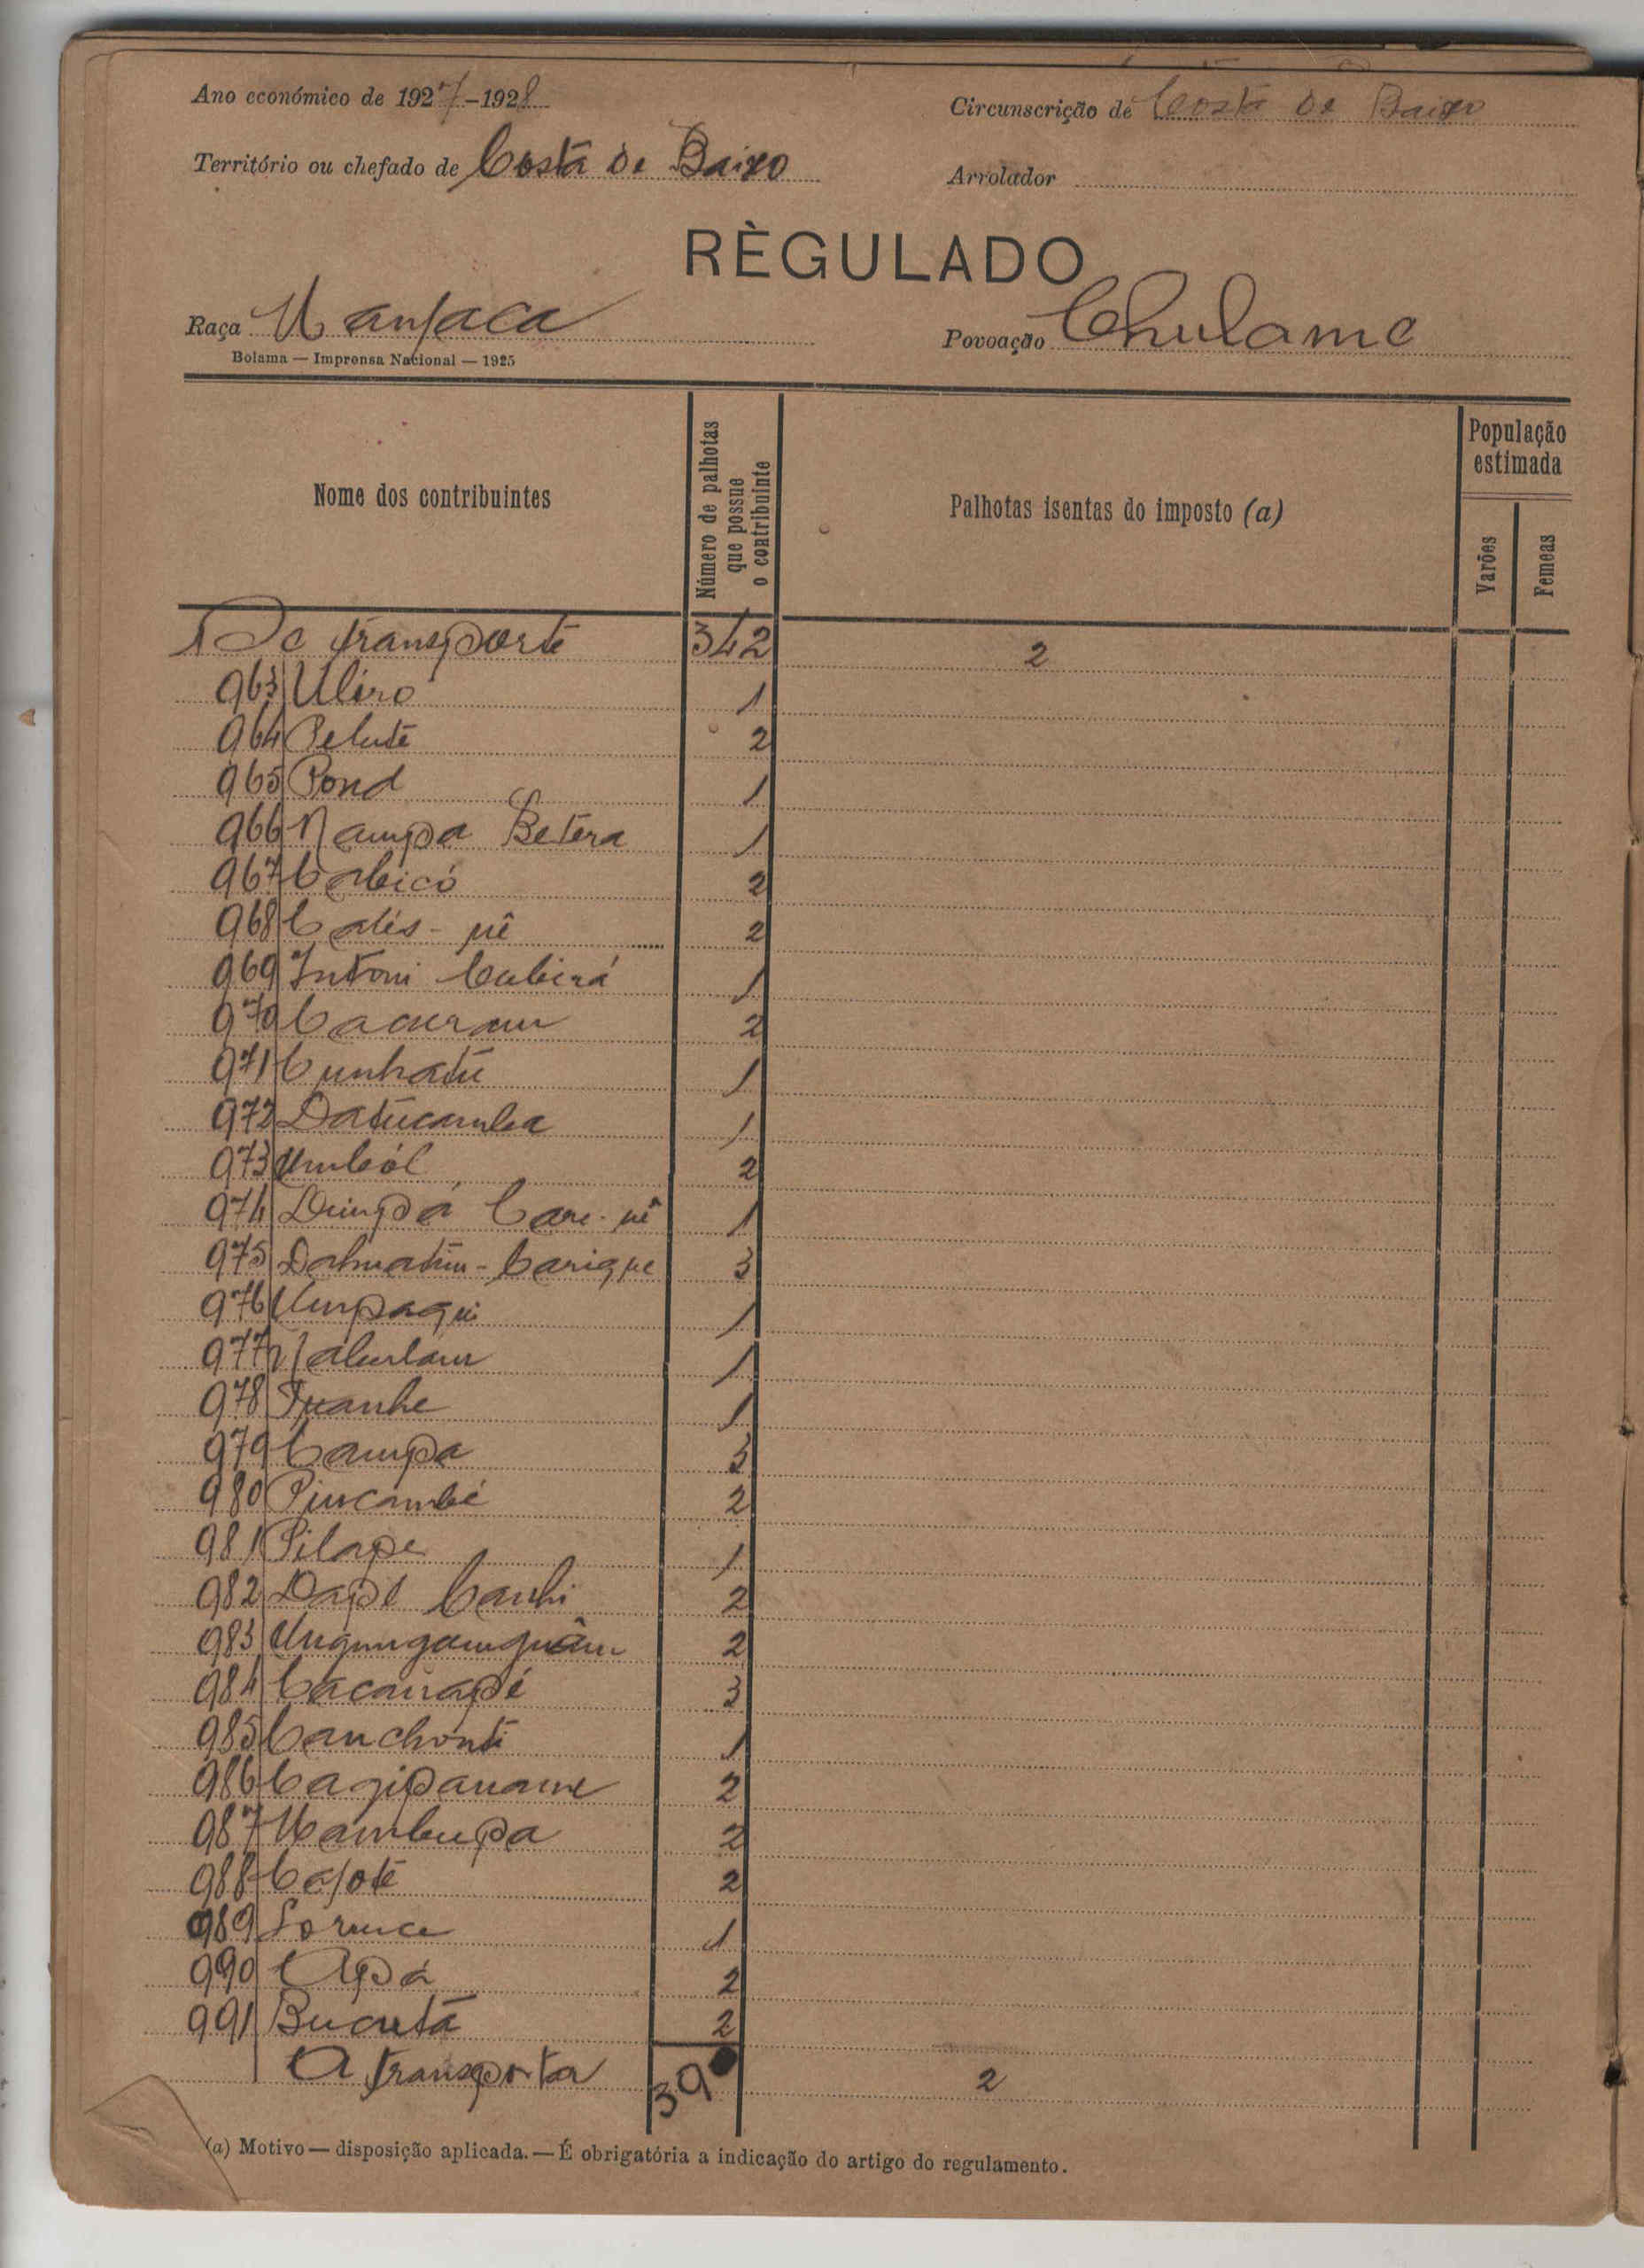 Ano económico de 1927-1928
Circunscrição de Costa de Baixo
Território ou chefado de Costa de Baixo
Arrolador
RÈGULADO
Raça Manjaca
Povoação Chulame
Bolama — Imprensa Nacional — 1925
Nome dos contribuintes
Número de palhotas que possue o contribuinte
Palhotas isentas do imposto (a)
População estimada
Varões
Femeas
De transporte 342 2
963 Uliro 1
964 Pelute 2
965 Pond 1
966 Nampa Betera 1
967 Cabicó 2
968 Catis-nê 2
969 Intoni Cubirá 1
970 2
971 Cunhate 1
972 Datucamba 1
973 Umból 2
974 1
975 3
976 Umpaqui 1
977 1
978 1
979 Campa 3
980 Puncambé 2
981 Pilape 1
982 Dapl Canhi 2
983 2
984 3
985 Canchonti 1
986 2
987 Mambupa 2
988 Cajote 2
989 1
990 Apá 2
991 2
A transportar 39 2
(a) Motivo — disposição aplicada. — É obrigatória a indicação do artigo do regulamento.